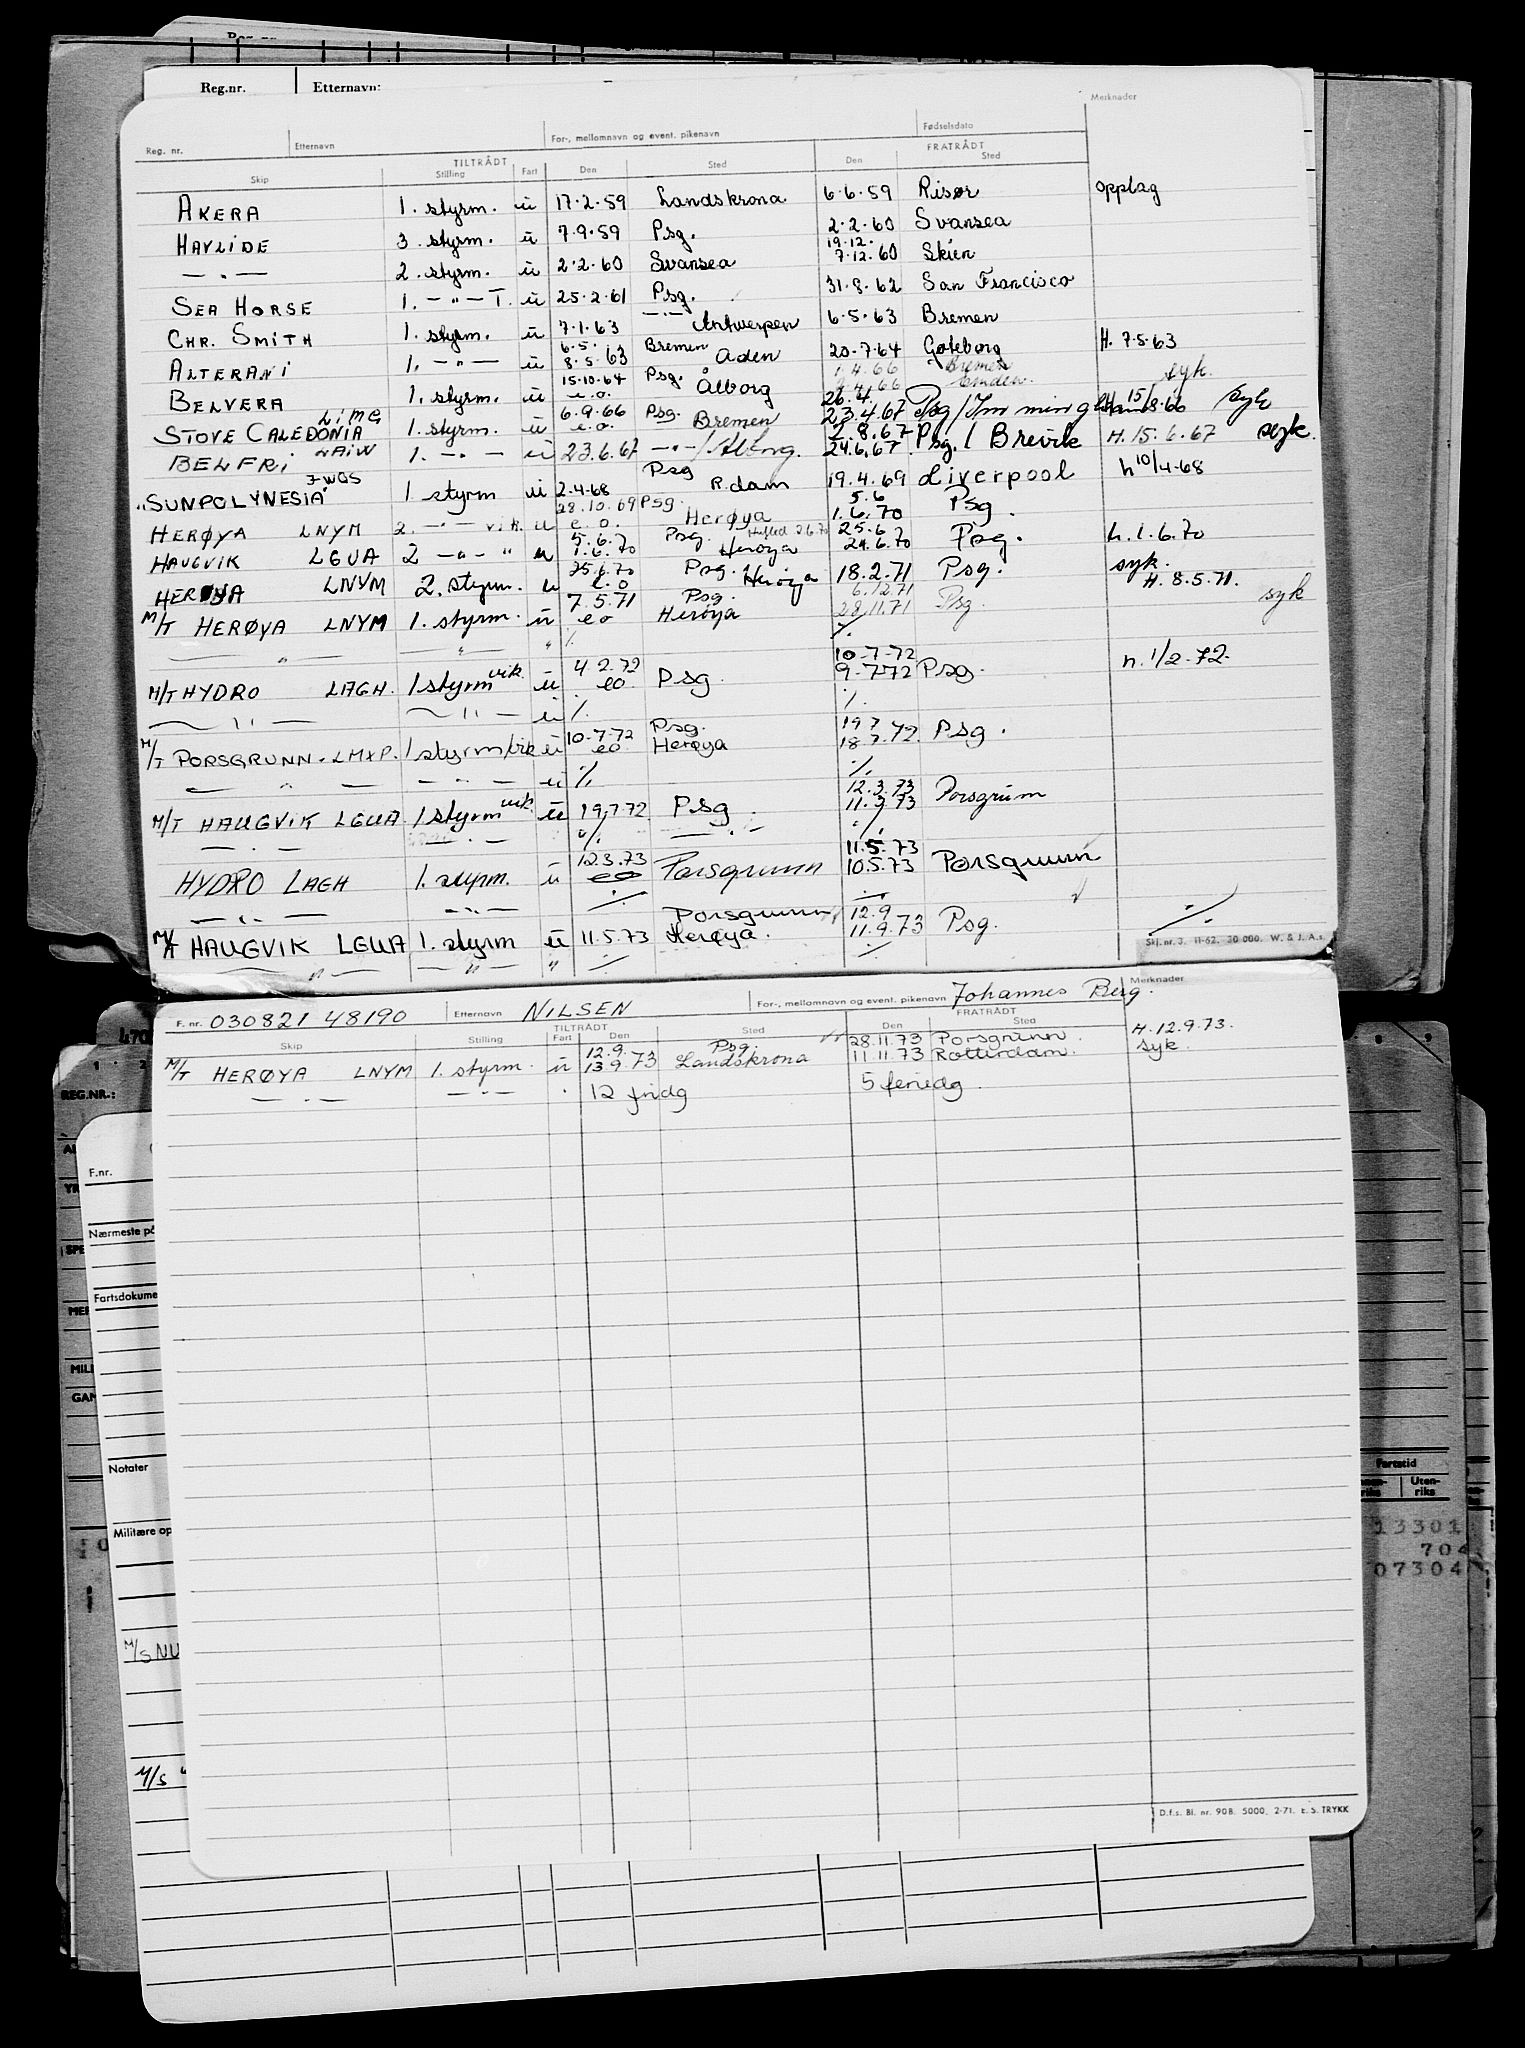 Reg.nr. Etternavn:
Merknader
Reg. nr. Etternavn For-, mellomnavn og event. pikenavn Fødselsdato
TILTRÅDT FRATRÅDT
Skip Stilling Fart Den Sted Den Sted
AKERA 1. styrm. ü 17.2.59 Landskrona 6.6.59 Risør opplag
HAVLIDE 3. styrm. ü 7.9.59 Psg. 2.2.60 Svansea
19.12.
— " — 2. styrm. ü 2.2.60 Svansea 7.12.60 Skien
SEA HORSE 1. — " — T. ü 25.2.61 Psg. 31.8.62 San Francisco
CHR. SMITH 1. styrm. ü 7.1.63 — " — Antwerpen 6.5.63 Bremen
6.5. Bremen
ALTERANI 1. — " — ü 8.5.63 Aden 20.7.64 Gøteborg H. 7.5.63
15.10.64 Psg. 1.4.66 Bremen
BELVERA 1. styrm. ü e.o. Ålborg 9.4.66 Emden. syk.
LIMG 6.9.66 Psg. 26.4.
STOVE CALEDONIA 1. styrm. ü e.o. Bremen 23.4.67 Psg/Immingham H. 15/8.66 syk
LAIW 2.8.67
BELFRI 1. — " — ü 23.6.67 — " — / Ålborg. 24.6.67 Psg. / Brevik H. 15.6.67 syk.
JWQS Psg
"SUNPOLYNESIA" 1 styrm ü 2.4.68 R.dam 19.4.69 Liverpool h 10/4-68
28.10.69 Psg. 5.6
HERØYA LNYM 2. — " — vik. u e.o. Herøya 1.6.70 Psg.
5.6.7 Psg. 25.6
HAUGVIK LGUA 2 — " — " u 1.6.70 Herøya 24.6.70 Psg. h. 1.6.70
25.6.70 Psg. syk.
HERØYA LNYM 2. styrm. u e.o Herøya 18.2.71 Psg. H. 8.5.71.
7.5.71 Psg. 6.12.71
M/T HERØYA LNYM 1. styrm. ü eo Herøya 28.11.71 Psg. syk
— " — — " — " ./. ./.
4.2.72 10-7-72
M/T HYDRO LAGH. 1 styrm vik. ü eo Psg 9-7-72 Psg. h. 1/2-72.
— " — — " — ü ./. ./.
10-7-72 Psg. 19.7
M/T PORSGRUNN. LMXP. 1 styrm/vik ü eo Herøya 18.7.72. Psg.
— " — — " — ü ./. ./.
12.3.73
M/T HAUGVIK LGUA 1 styrm vik. ü 19.7.72 Psg 11.3.73 Porsgrunn
— " — — " — ./. — " — ./.
12.3.73 11.5.73
HYDRO LAGH 1. styrm. ü eo Porsgrunn 10.5.73 Porsgrunn
— " — — " — ./. ./.
Porsgrunn 12.9
M/T HAUGVIK LGUA 1. styrm ü 11.5.73 Herøya. 11.9.73 Psg. ./.
— " — — " — " ./. ./.
Skj. nr. 3. 11-62. 30 000. W. & J. A.s.
F. nr. 030821 48190 Etternavn NILSEN For-, mellomnavn og event. pikenavn Johannes Berg. Merknader
TILTRÅDT FRATRÅDT
Skip Stilling Fart Den Sted Den Sted
12.9. Psg. 28.11.73 Porsgrunn. H. 12.9.73.
M/T HERØYA LNYM 1. styrm. ü 13.9.73 Landskrona 11.11.73 Rotterdam. syk
— " — — " — " 12 fridg 5 feriedg.
D.f.s. Bl. nr. 90B. 5000. 2-71. E. S. TRYKK
470
REG.NR.:
F.nr.
Nærmeste på
Fartsdokume
MIL
GAM
Notater
Militære op
M/S NU
M/S
Fartstid
Uten-
riks
13301
704
07304